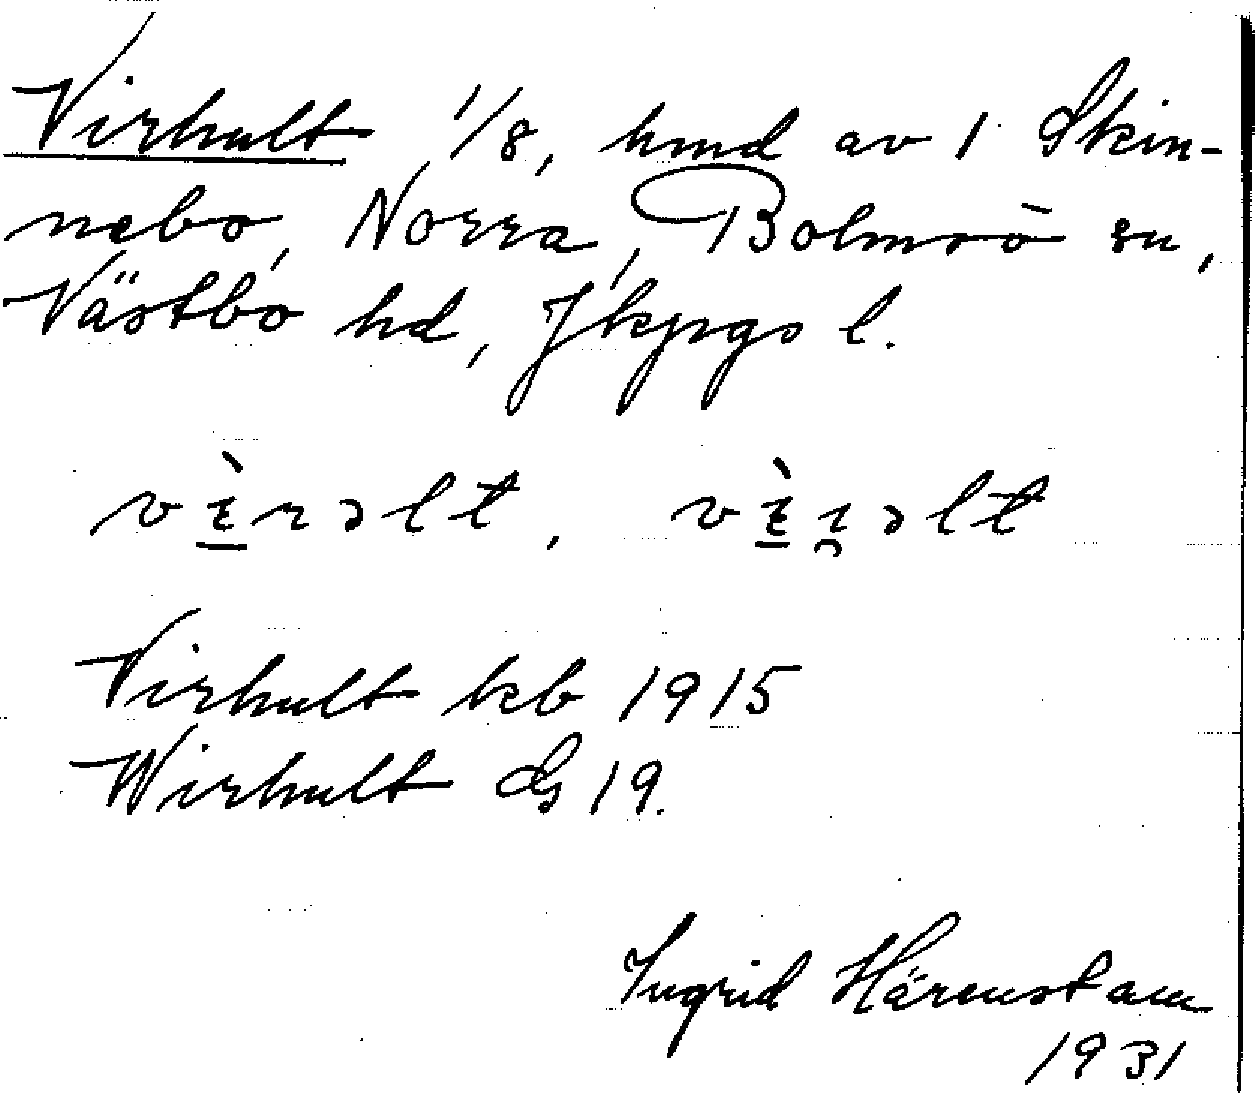 Virhult 1/8, hmd av 1 Skin-
nebo, Norra, Bolmsö sn,
Västbo hd, Jkpgs l.
Virhult kb 1915
Wirhult GS 19.
Ingrid Härenstam
1931